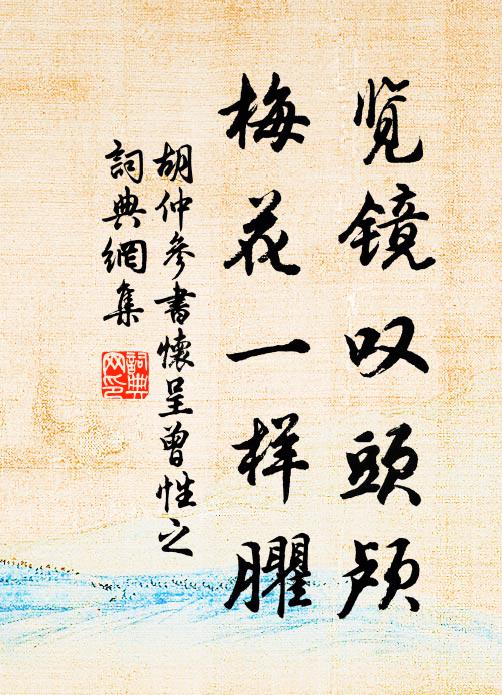 览镜叹头颅
梅花一样臞
胡仲参书懷呈曾性之
詞典網集
詞典网印